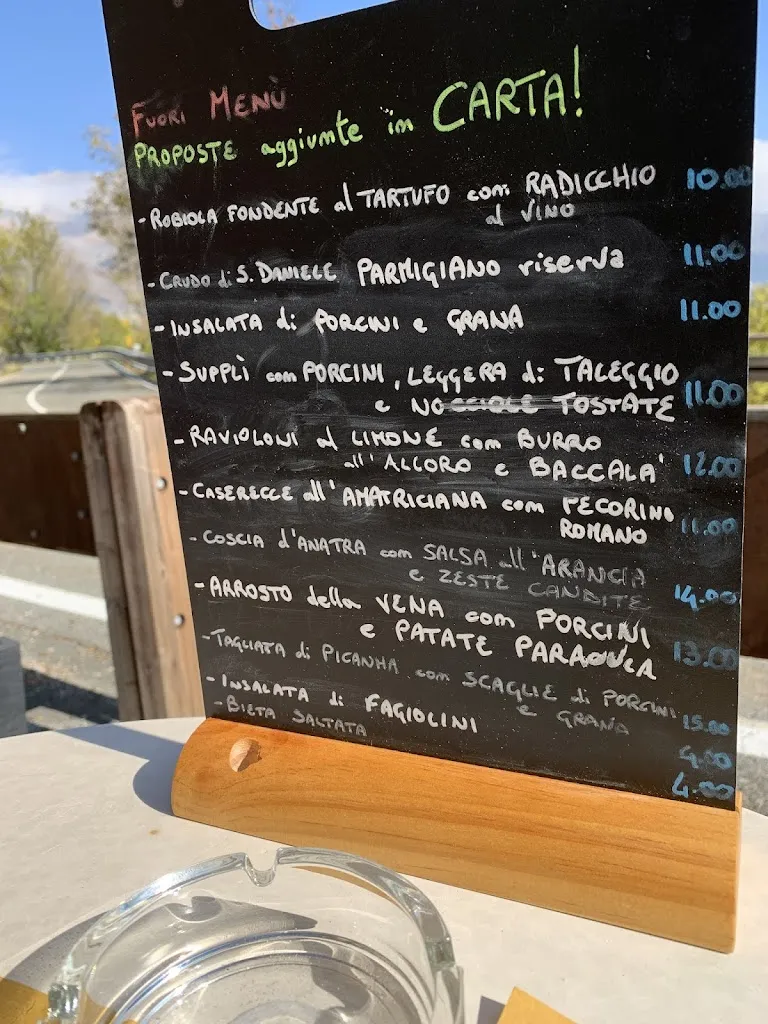 FUORI MENÙ
PROPOSTE aggiunte in CARTA!
- ROBIOLA FONDENTE al TARTUFO con RADICCHIO 10.00
al VINO
- CRUDO di S. DANIELE PARMIGIANO riserva 11.00
- INSALATA di PORCINI e GRANA 11.00
- SUPPLÌ con PORCINI, LEGGERA di TALEGGIO
e NOCCIOLE TOSTATE 11.00
- RAVIOLONI al LIMONE con BURRO
all'ALLORO e BACCALA' 12.00
- CASERECCE all'AMATRICIANA con PECORINO
ROMANO 11.00
- COSCIA d'ANATRA con SALSA all'ARANCIA
e ZESTE CANDITE 14.00
- ARROSTO della VENA con PORCINI
e PATATE 13.00
- TAGLIATA di PICANHA con SCAGLIE di PORCINI
e GRANA 15.00
- INSALATA di FAGIOLINI 4.00
- BIETA SALTATA 4.00